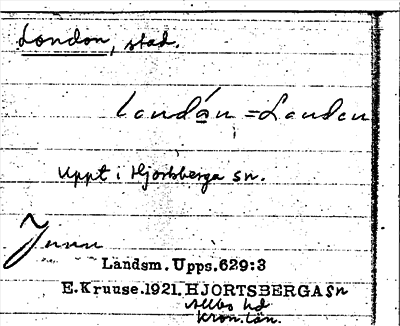 London, stad.
landán = Landan
Uppt i Hjortsberga sn.
Landsm. Upps. 629:3
E. Kruuse. 1921. HJORTSBERGA Sn
Allbo hd
Kron. län.